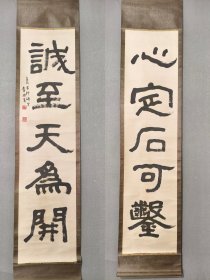 心定石可鑿
誠至天為開